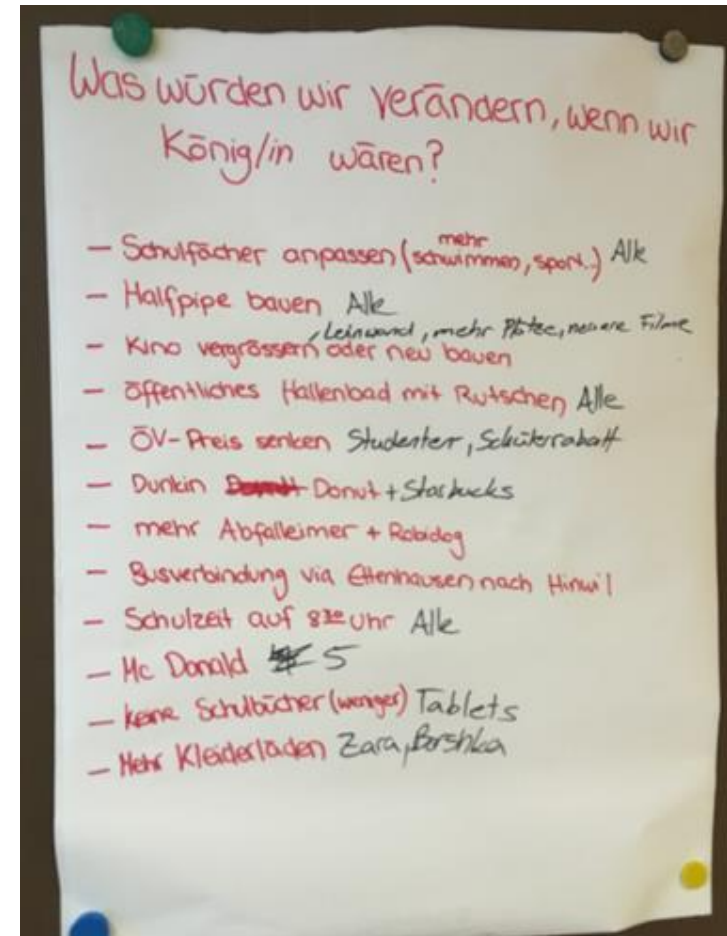 Was würden wir verändern, wenn wir
König/in wären?
mehr
– Schulfächer anpassen (schwimmen, sport..) Alle
– Halfpipe bauen Alle
, Leinwand, mehr Plätze, neuere Filme
– Kino vergrössern oder neu bauen
– öffentliches Hallenbad mit Rutschen Alle
– ÖV-Preis senken Studenten, Schülerrabatt
– Dunkin Donut + Starbucks
– mehr Abfalleimer + Robidog
– Busverbindung via Ettenhausen nach Hinwil
– Schulzeit auf 8 Uhr Alle
– Mc Donald 5
– keine Schulbücher (weniger) Tablets
– Mehr Kleiderläden Zara, Bershka